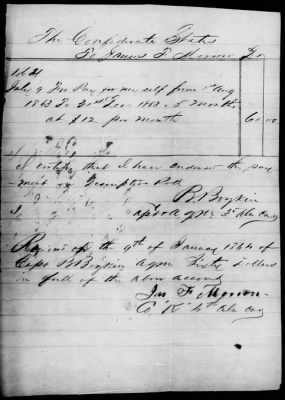 The Confederate States
To James F. Morrow Dr
1864
July 9 For Pay for my self from 1st Aug
1863 To 31st Dec 1863 5 months
at $12 per month 60.00
I certify that I have endorsed the pay
ment on Descriptive Roll
B. Boykin
Capt & AQM 3d Ala Cav
Received of the 9th of January 1864 of
Capt B Boykin AQM Sixty Dollars
in full of the above account
Jas F Morrow
Co "K" Ala Cav